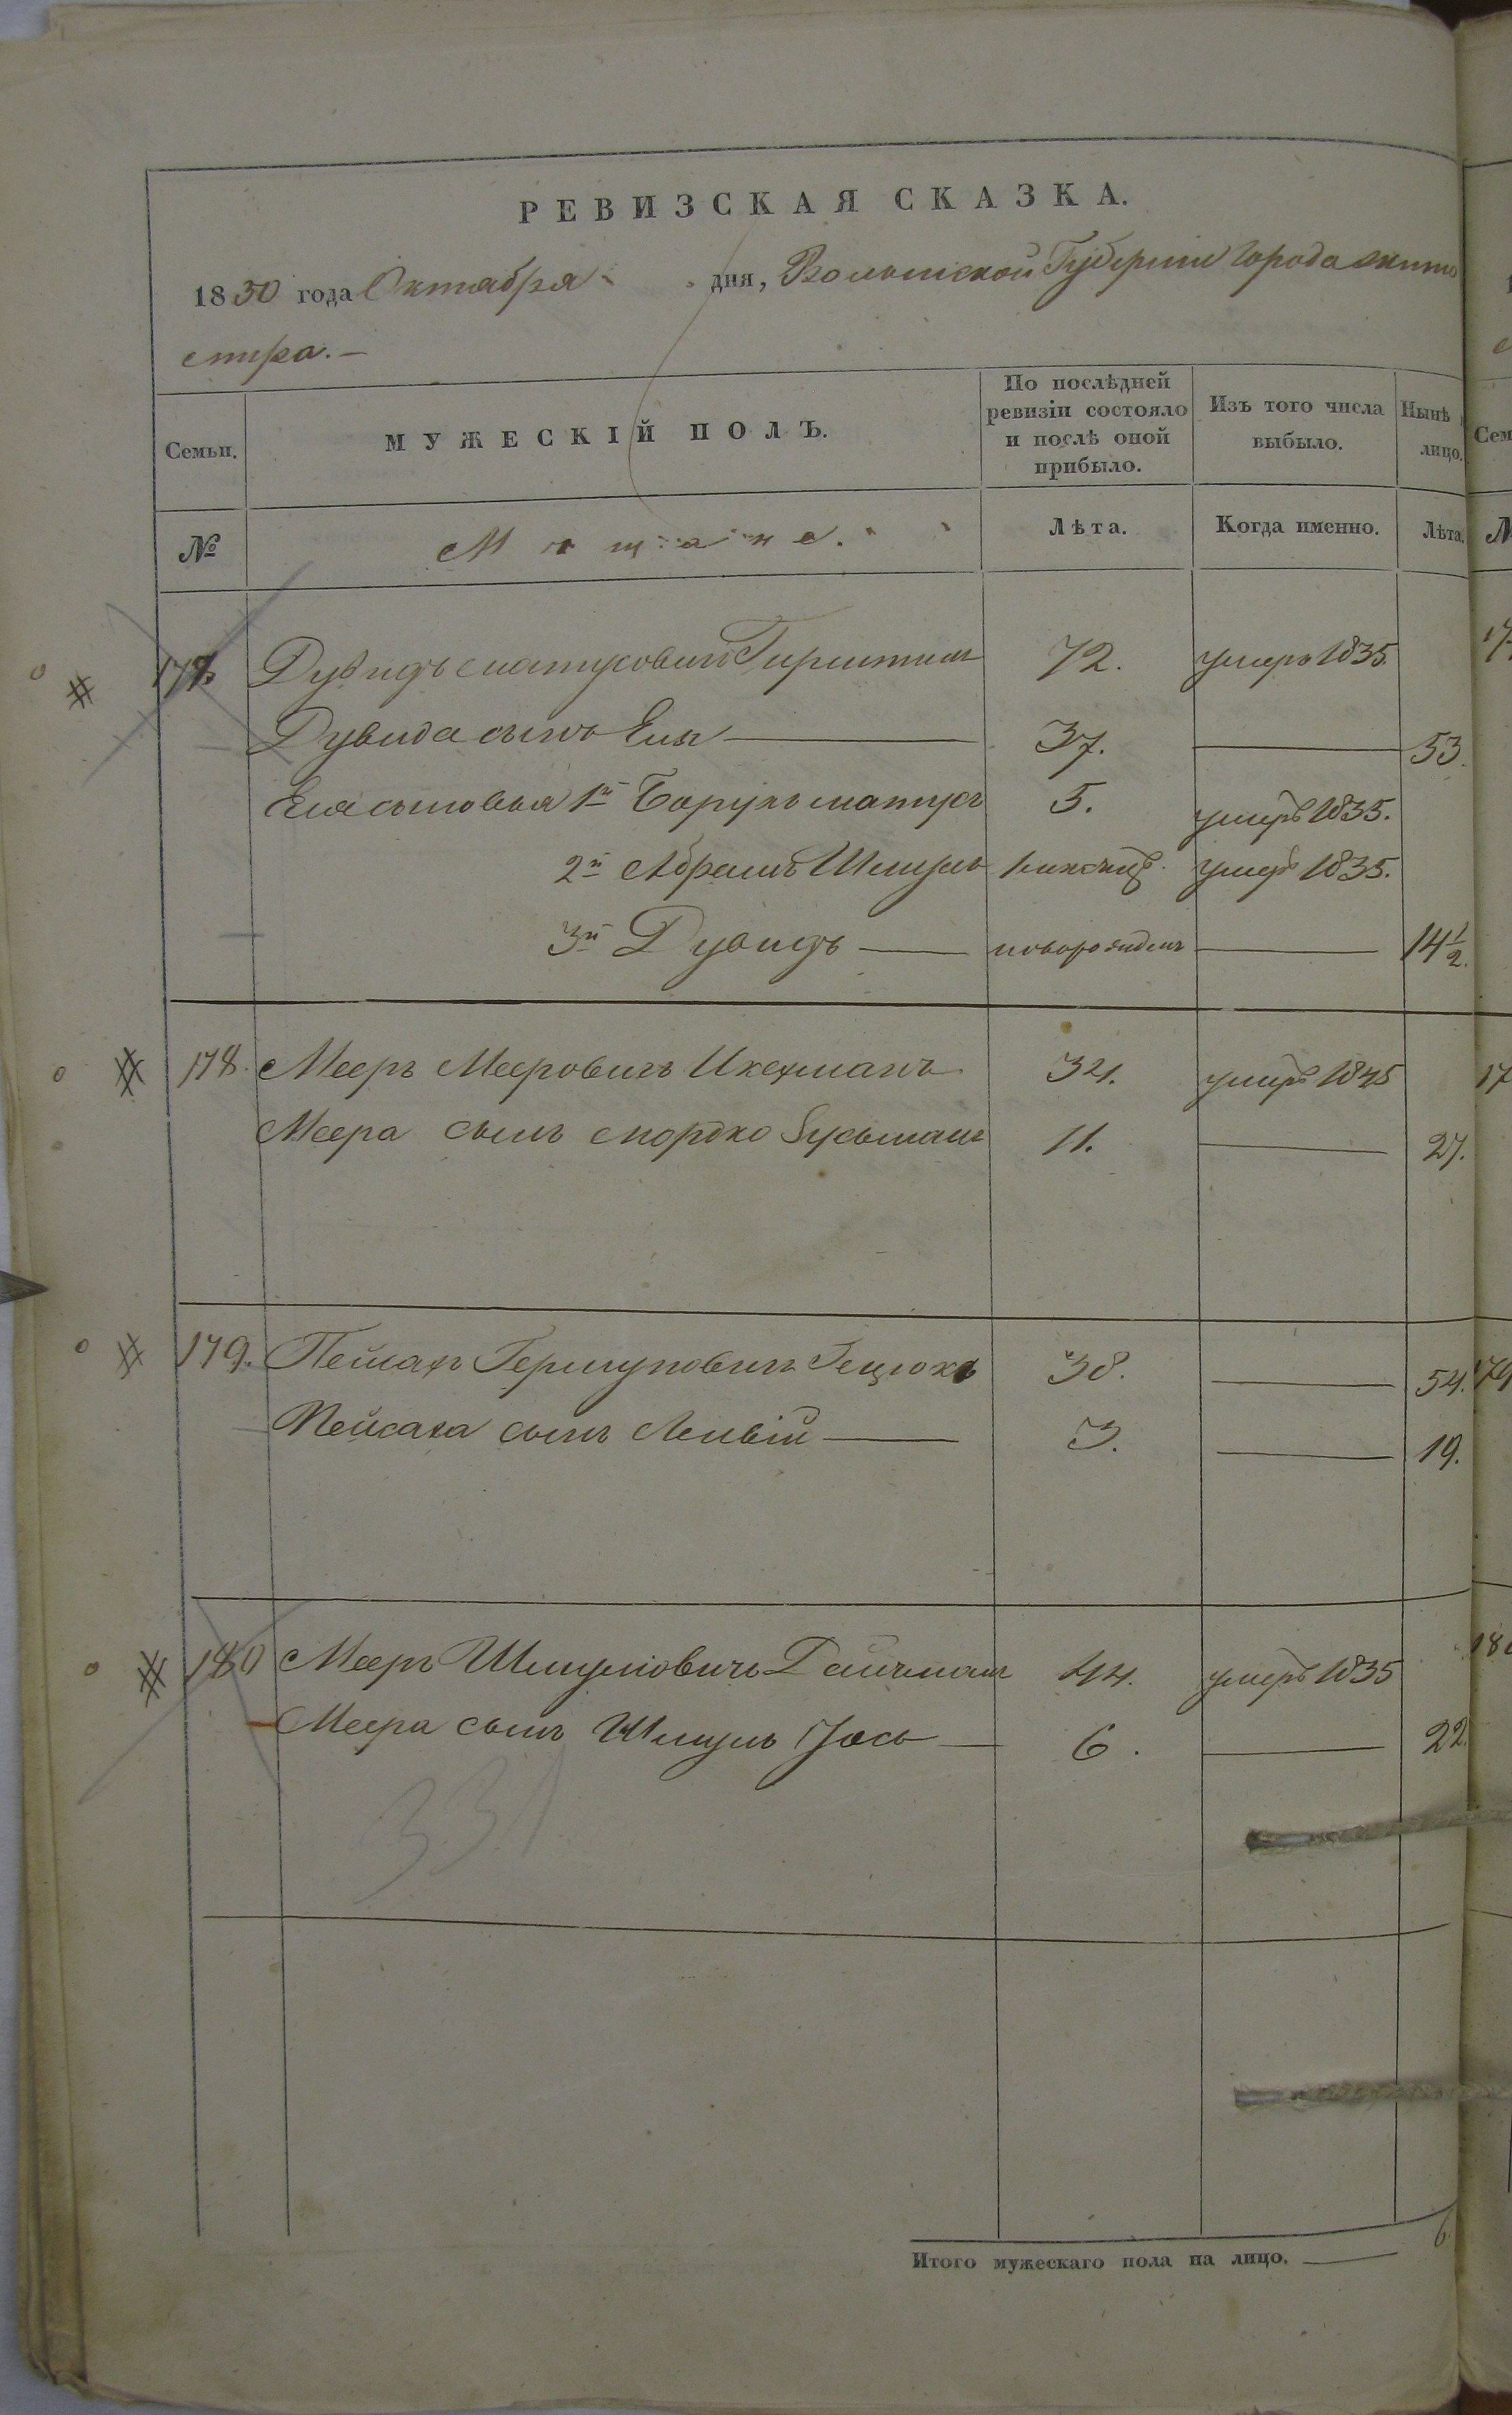 РЕВИЗСКАЯ СКАЗКА.
1850 года Октября дня, Волынской Губернии города Жито
мира. —
Семьи. МУЖЕСКІЙ ПОЛЪ. По послѣдней ревизіи состояло и послѣ оной прибыло. Изъ того числа выбыло. Нынѣ лицо.
№ Мѣщане. Лѣта. Когда именно. Лѣта.
177. Дувидъ Матусовичъ 72. умеръ 1835.
Дувида сынъ Ель — 37. — 53.
Еля сыновья 1й Борухъ Матусъ 5. умеръ 1835.
2й Абрамъ Шмуль умеръ 1835.
3й Дувидъ — новорожденъ — 14½.
178. Мееръ Мееровичъ 34. умеръ 1845
Меера сынъ Мордко Зусьманъ 11. — 27.
179. Пейсахъ 38. — 54.
Пейсаха сынъ Лейвій — 3. — 19.
180 Мееръ Шмулiовичъ 44. умеръ 1835
Меера сынъ Шмуль Іось — 6. — 22.
331
Итого мужескаго пола на лицо. — 6